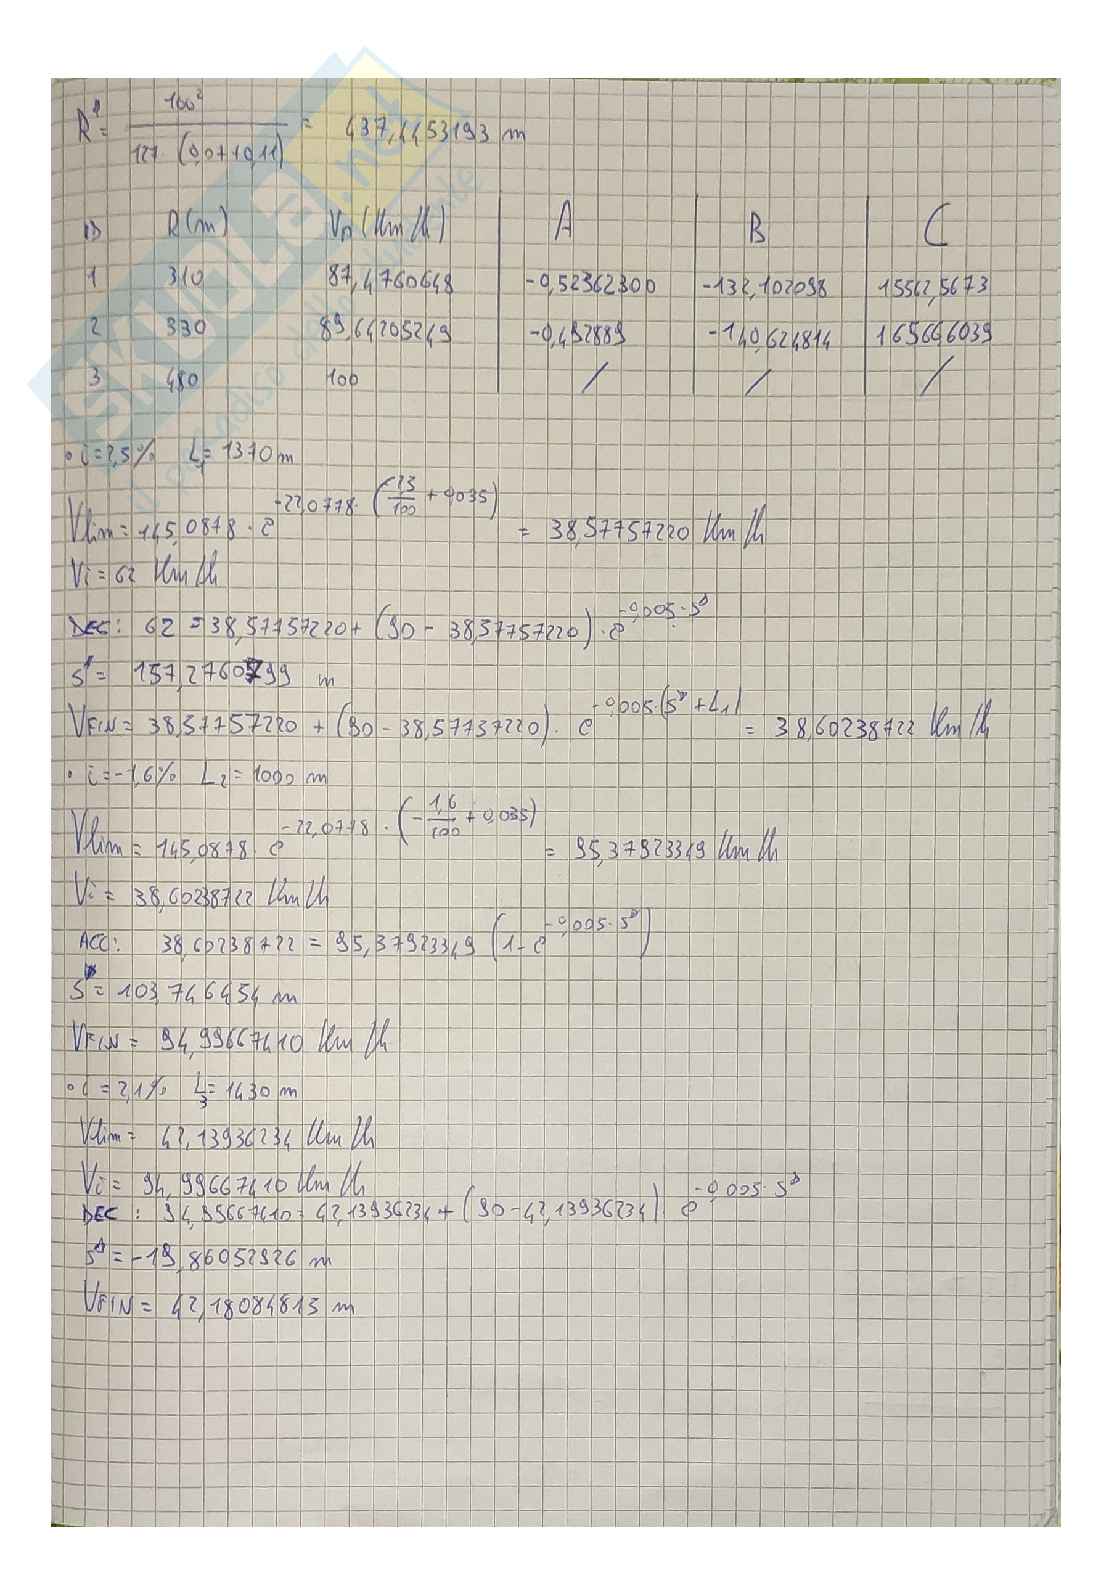 R* = 100² / 127 · (0,07+0,11) = 437,4453193 m
ID R(m) VD (Km/h) A B C
1 310 87,4760648 -0,52362300 -132,102098 15562,5673
2 330 89,64205249 -0,492889 -140,624814 16566,6039
3 480 100 / / /
• i = 2,5% L1 = 1370 m
Vlim = 145,0878 · e^{-22,0778 · (2,5/100 + 0,035)} = 38,57757220 Km/h
Vi = 62 Km/h
DEC: 62 = 38,57757220 + (90 - 38,57757220) · e^{-0,005 · s*}
s* = 157,2760799 m
VFIN = 38,57757220 + (90 - 38,57757220) · e^{-0,005 · (s* + L1)} = 38,60238722 Km/h
• i = -1,6% L2 = 1000 m
Vlim = 145,0878 e^{-22,0778 · (-1,6/100 + 0,035)} = 95,37923349 Km/h
Vi = 38,60238722 Km/h
ACC: 38,60238722 = 95,37923349 (1 - e^{-0,005 · s*})
s* = 103,746454 m
VFIN = 94,99667410 Km/h
• i = 2,1% L3 = 1430 m
Vlim = 42,13936234 Km/h
Vi = 94,99667410 Km/h
DEC: 94,99667410 = 42,13936234 + (90 - 42,13936234) e^{-0,005 · s*}
s* = -19,86052926 m
VFIN = 42,18084813 m